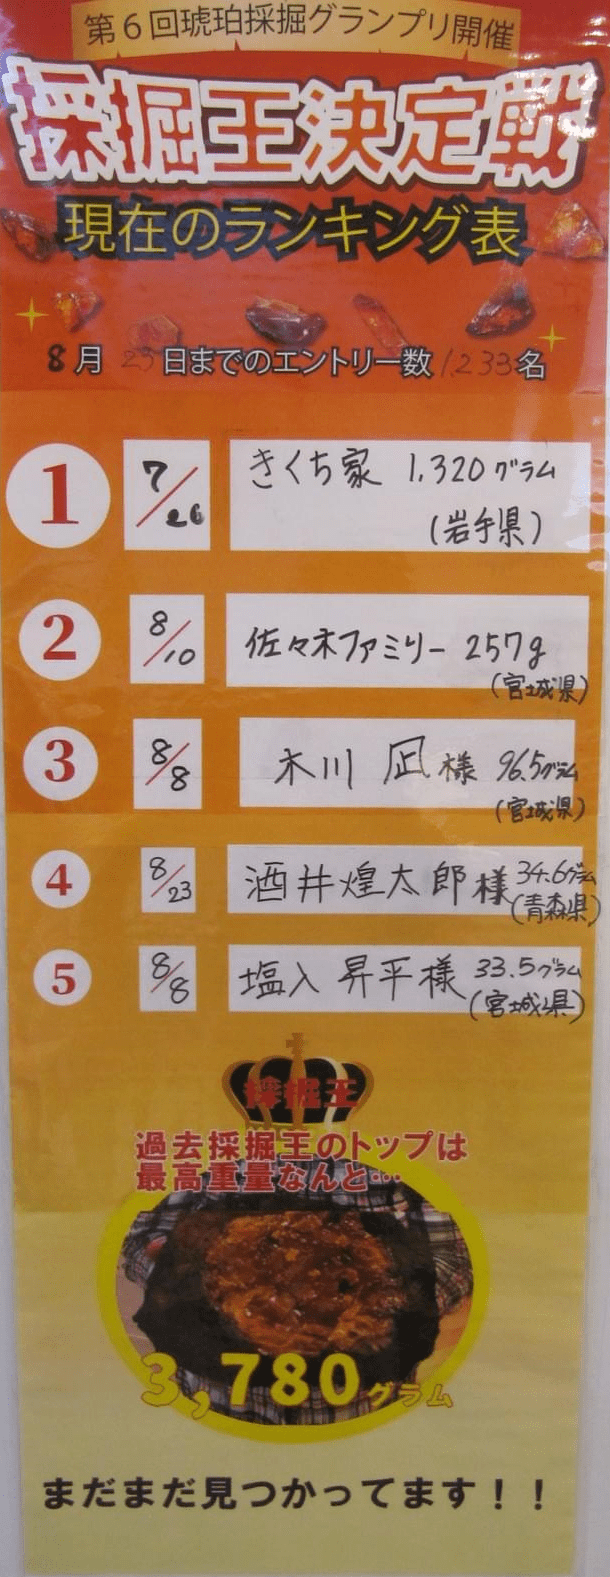 第6回琥珀採掘グランプリ開催
採掘王決定戦
現在のランキング表
8月 25日までのエントリー数 1,233名
1 7/26 きくち家 1,320グラム
(岩手県)
2 8/10 佐々木ファミリー 257g
(宮城県)
3 8/8 木川 凪様 96.5グラム
(宮城県)
4 8/23 酒井煌太郎様 34.6グラム
(青森県)
5 8/8 塩入昇平様 33.5グラム
(宮城県)
採掘王
過去採掘王のトップは
最高重量なんと…
3,780グラム
まだまだ見つかってます！！